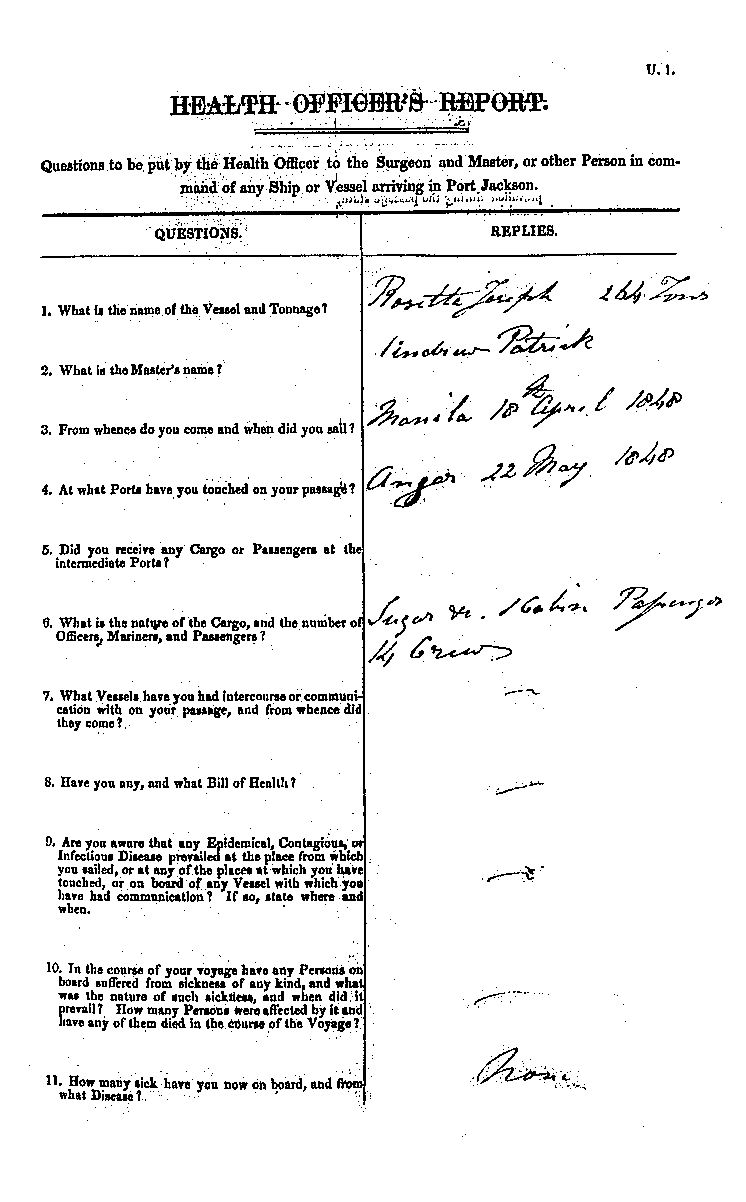 U. 1.
HEALTH OFFICER'S REPORT.
Questions to be put by the Health Officer to the Surgeon and Master, or other Person in com-
mand of any Ship or Vessel arriving in Port Jackson.
QUESTIONS.
REPLIES.
1. What is the name of the Vessel and Tonnage?
Rosetta Joseph 264 Tons
2. What is the Master's name?
Andrew Patrick
3. From whence do you come and when did you sail?
Manila 18th April 1848
4. At what Ports have you touched on your passage?
Anger 22 May 1848
5. Did you receive any Cargo or Passengers at the
intermediate Ports?
6. What is the nature of the Cargo, and the number of
Officers, Mariners, and Passengers?
Sugar &c. 1 Cabin Passenger
14 Crew
7. What Vessels have you had intercourse or communi-
cation with on your passage, and from whence did
they come?
—
8. Have you any, and what Bill of Health?
—
9. Are you aware that any Epidemical, Contagious, or
Infectious Disease prevailed at the place from which
you sailed, or at any of the places at which you have
touched, or on board of any Vessel with which you
have had communication? If so, state where and
when.
—
10. In the course of your voyage have any Persons on
board suffered from sickness of any kind, and what
was the nature of such sickness, and when did it
prevail? How many Persons were affected by it and
have any of them died in the course of the Voyage?
—
11. How many sick have you now on board, and from
what Disease?
None